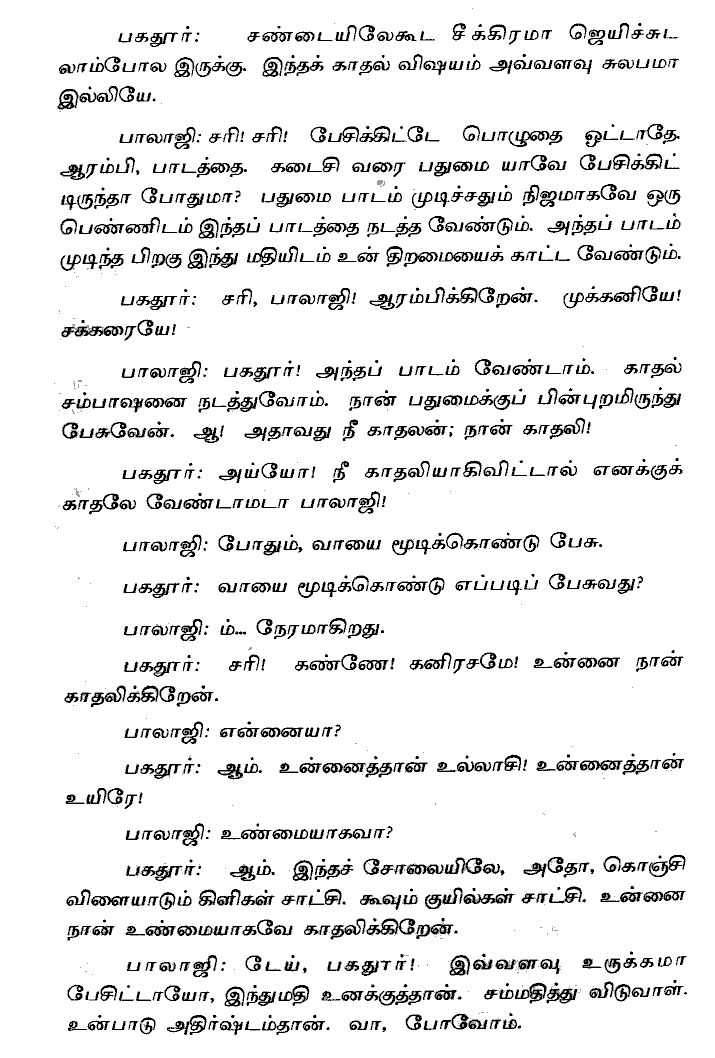 பகதூர்: சண்டையிலேகூட சீக்கிரமா ஜெயிச்சுட
லாம்போல இருக்கு. இந்தக் காதல் விஷயம் அவ்வளவு சுலபமா
இல்லியே.
பாலாஜி: சரி! சரி! பேசிக்கிட்டே பொழுதை ஒட்டாதே.
ஆரம்பி, பாடத்தை. கடைசி வரை பதுமை யாவே பேசிக்கிட்
டிருந்தா போதுமா? பதுமை பாடம் முடிச்சதும் நிஜமாகவே ஒரு
பெண்ணிடம் இந்தப் பாடத்தை நடத்த வேண்டும். அந்தப் பாடம்
முடிந்த பிறகு இந்து மதியிடம் உன் திறமையைக் காட்ட வேண்டும்.
பகதூர்: சரி, பாலாஜி! ஆரம்பிக்கிறேன். முக்கனியே!
சக்கரையே!
பாலாஜி: பகதூர்! அந்தப் பாடம் வேண்டாம். காதல்
சம்பாஷனை நடத்துவோம். நான் பதுமைக்குப் பின்புறமிருந்து
பேசுவேன். ஆ! அதாவது நீ காதலன்; நான் காதலி!
பகதூர்: அய்யோ! நீ காதலியாகிவிட்டால் எனக்குக்
காதலே வேண்டாமடா பாலாஜி!
பாலாஜி: போதும், வாயை மூடிக்கொண்டு பேசு.
பகதூர்: வாயை மூடிக்கொண்டு எப்படிப் பேசுவது?
பாலாஜி: ம்... நேரமாகிறது.
பகதூர்: சரி! கண்ணே! கனிரசமே! உன்னை நான்
காதலிக்கிறேன்.
பாலாஜி: என்னையா?
பகதூர்: ஆம். உன்னைத்தான் உல்லாசி! உன்னைத்தான்
உயிரே!
பாலாஜி: உண்மையாகவா?
பகதூர்: ஆம். இந்தச் சோலையிலே, அதோ, கொஞ்சி
விளையாடும் கிளிகள் சாட்சி. கூவும் குயில்கள் சாட்சி. உன்னை
நான் உண்மையாகவே காதலிக்கிறேன்.
பாலாஜி: டேய், பகதூர்! இவ்வளவு உருக்கமா
பேசிட்டாயோ, இந்துமதி உனக்குத்தான். சம்மதித்து விடுவாள்.
உன்பாடு அதிர்ஷ்டம்தான். வா, போவோம்.